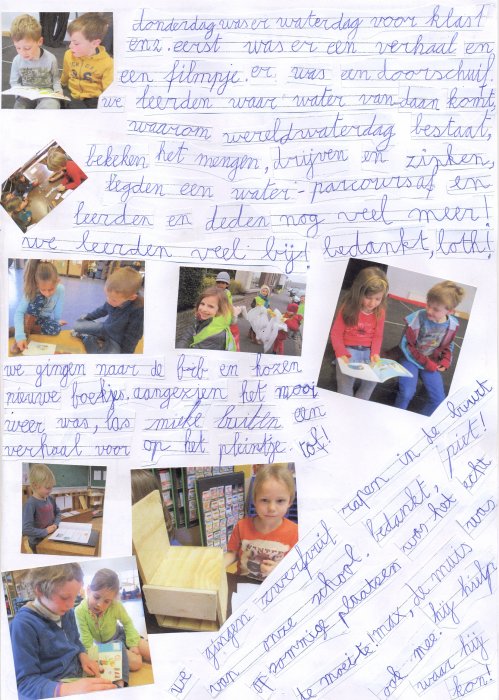 donderdag was er waterdag voor klas 1
en 2. eerst was er een verhaal en
een filmpje. er was een doorschuif.
we leerden waar water vandaan komt,
waarom wereldwaterdag bestaat,
bekeken het mengen, drijven en zinken,
legden een water-parcours af en
leerden en deden nog veel meer!
we leerden veel bij! bedankt, loth!
we gingen naar de bib en kozen
nieuwe boekjes. aangezien het mooi
weer was, las mieke buiten een
verhaal voor op het pleintje. tof!
we gingen zwerfvuil rapen in de buurt
van onze school. bedankt, piet!
op sommige plaatsen was het echt
de moeite! max, de muis was
ook mee. hij hielp
waar hij
kon!